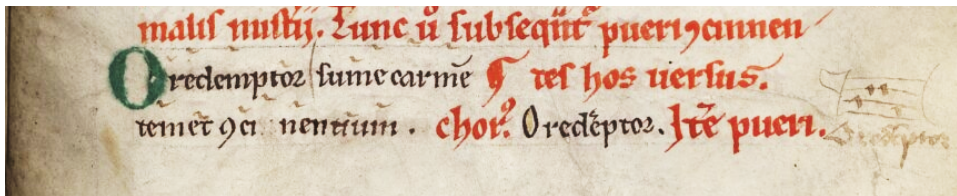 malis mistii. Tunc ũ subseqũt᷑ pueri ꝯcinnen
O redemptor sume carmẽ ¶ tes hos uersus.
temet̃ ꝯci nentium. chor᷒. O redẽptor. Itẽ pueri.
O redẽptor